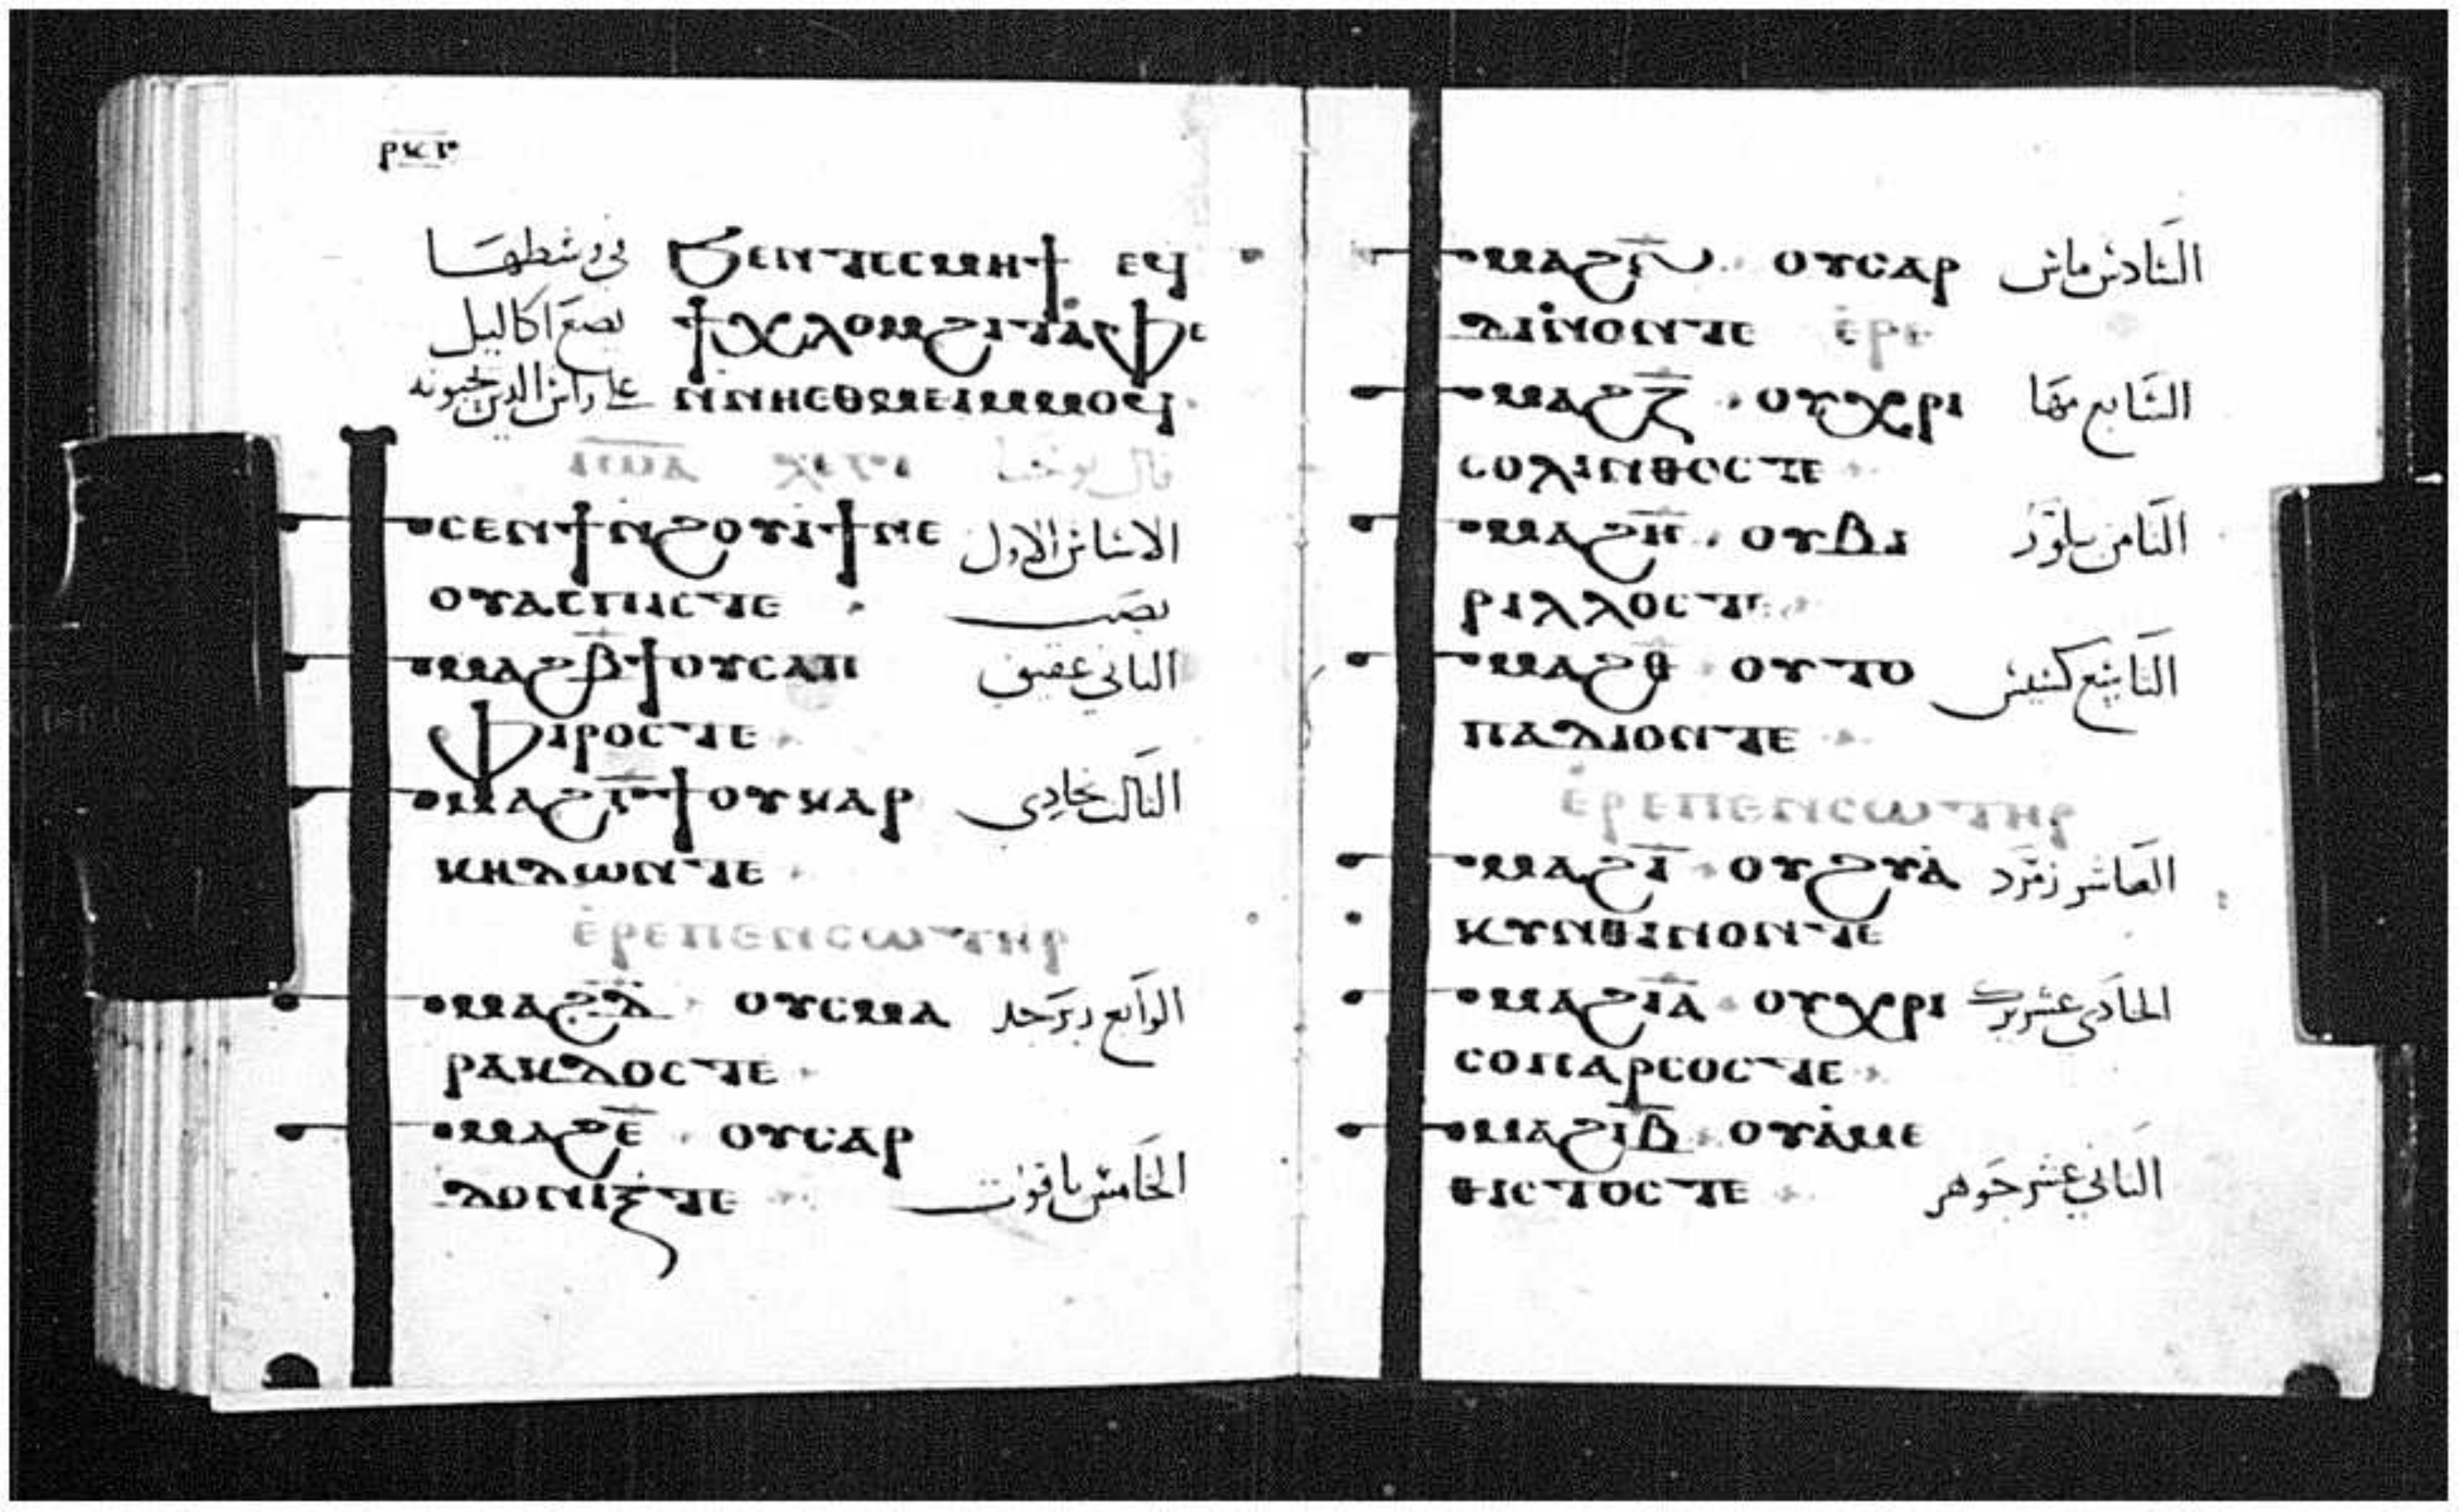 ⲣⲕⲅ
ϧⲉⲛⲧⲉⲥⲙⲏϯ ⲉϥ في وسطها
ϯⲭⲗⲟⲙϩⲓⲧⲁⲫⲉ يضع اكاليل
ⲛⲛⲏⲉⲑⲙⲉⲓⲙⲙⲟϥ علي راس الدين يحبونه
ⲓⲱⲁ ⲭⲉⲧⲉ قال يوحنا
ⲥⲉⲛϯⲛϩⲟⲩⲓϯⲛⲉ الاساس الاول
ⲟⲩⲁⲥⲡⲓⲥⲧⲉ يصب
ⲙⲁϩⲃ̅ϯⲟⲩⲥⲁⲡ الثاني عقيق
ⲫⲓⲣⲟⲥⲧⲉ
ⲙⲁϩⲅ̅ϯⲟⲩⲕⲁⲣ الثالث بجادي
ⲕⲏⲇⲱⲛⲧⲉ
ⲉ̀ⲣⲉⲡⲉⲛⲥⲱⲧⲏⲣ
ⲙⲁϩⲇ̅ ⲟⲩⲥⲙⲁ الرابع زبرجد
ⲣⲁⲕⲇⲟⲥⲧⲉ
ⲙⲁϩⲉ̅ ⲟⲩⲥⲁⲣ
ⲇⲟⲛⲓⲝⲧⲉ الخامس ياقوت
ⲙⲁϩⲋ̅ ⲟⲩⲥⲁⲣ السادس ماس
ⲇⲓⲛⲟⲛⲧⲉ ⲉ̀ⲣⲉ
ⲙⲁϩⲍ̅ ⲟⲩⲭⲣⲓ السابع مها
ⲥⲟⲗⲓⲛⲑⲟⲥⲧⲉ
ⲙⲁϩⲏ̅ ⲟⲩⲃⲓ الثامن بلور
ⲣⲓⲗⲗⲟⲥⲧⲉ
ⲙⲁϩⲑ̅ ⲟⲩⲧⲟ التاسع
ⲡⲁⲇⲓⲟⲛⲧⲉ
ⲉ̀ⲣⲉⲡⲉⲛⲥⲱⲧⲏⲣ
ⲙⲁϩⲓ̅ ⲟⲩϩⲩⲁ̀ العاشر زمرد
ⲕⲩⲛⲑⲓⲛⲟⲛⲧⲉ
ⲙⲁϩⲓⲁ̅ ⲟⲩⲭⲣⲓ الحادي عشر
ⲥⲟⲡⲁⲣⲥⲟⲥⲧⲉ
ⲙⲁϩⲓⲃ̅ ⲟⲩⲁ̀ⲙⲉ
ⲑⲓⲥⲧⲟⲥⲧⲉ الثاني عشر جوهر